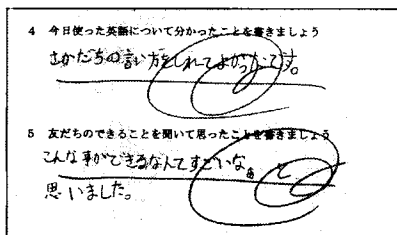 4 今日使った英語について分かったことを書きましょう
さかだちの言い方をしれてよかったです。
5 友だちのできることを聞いて思ったことを書きましょう
こんな事ができるなんてすごいな。と
思いました。